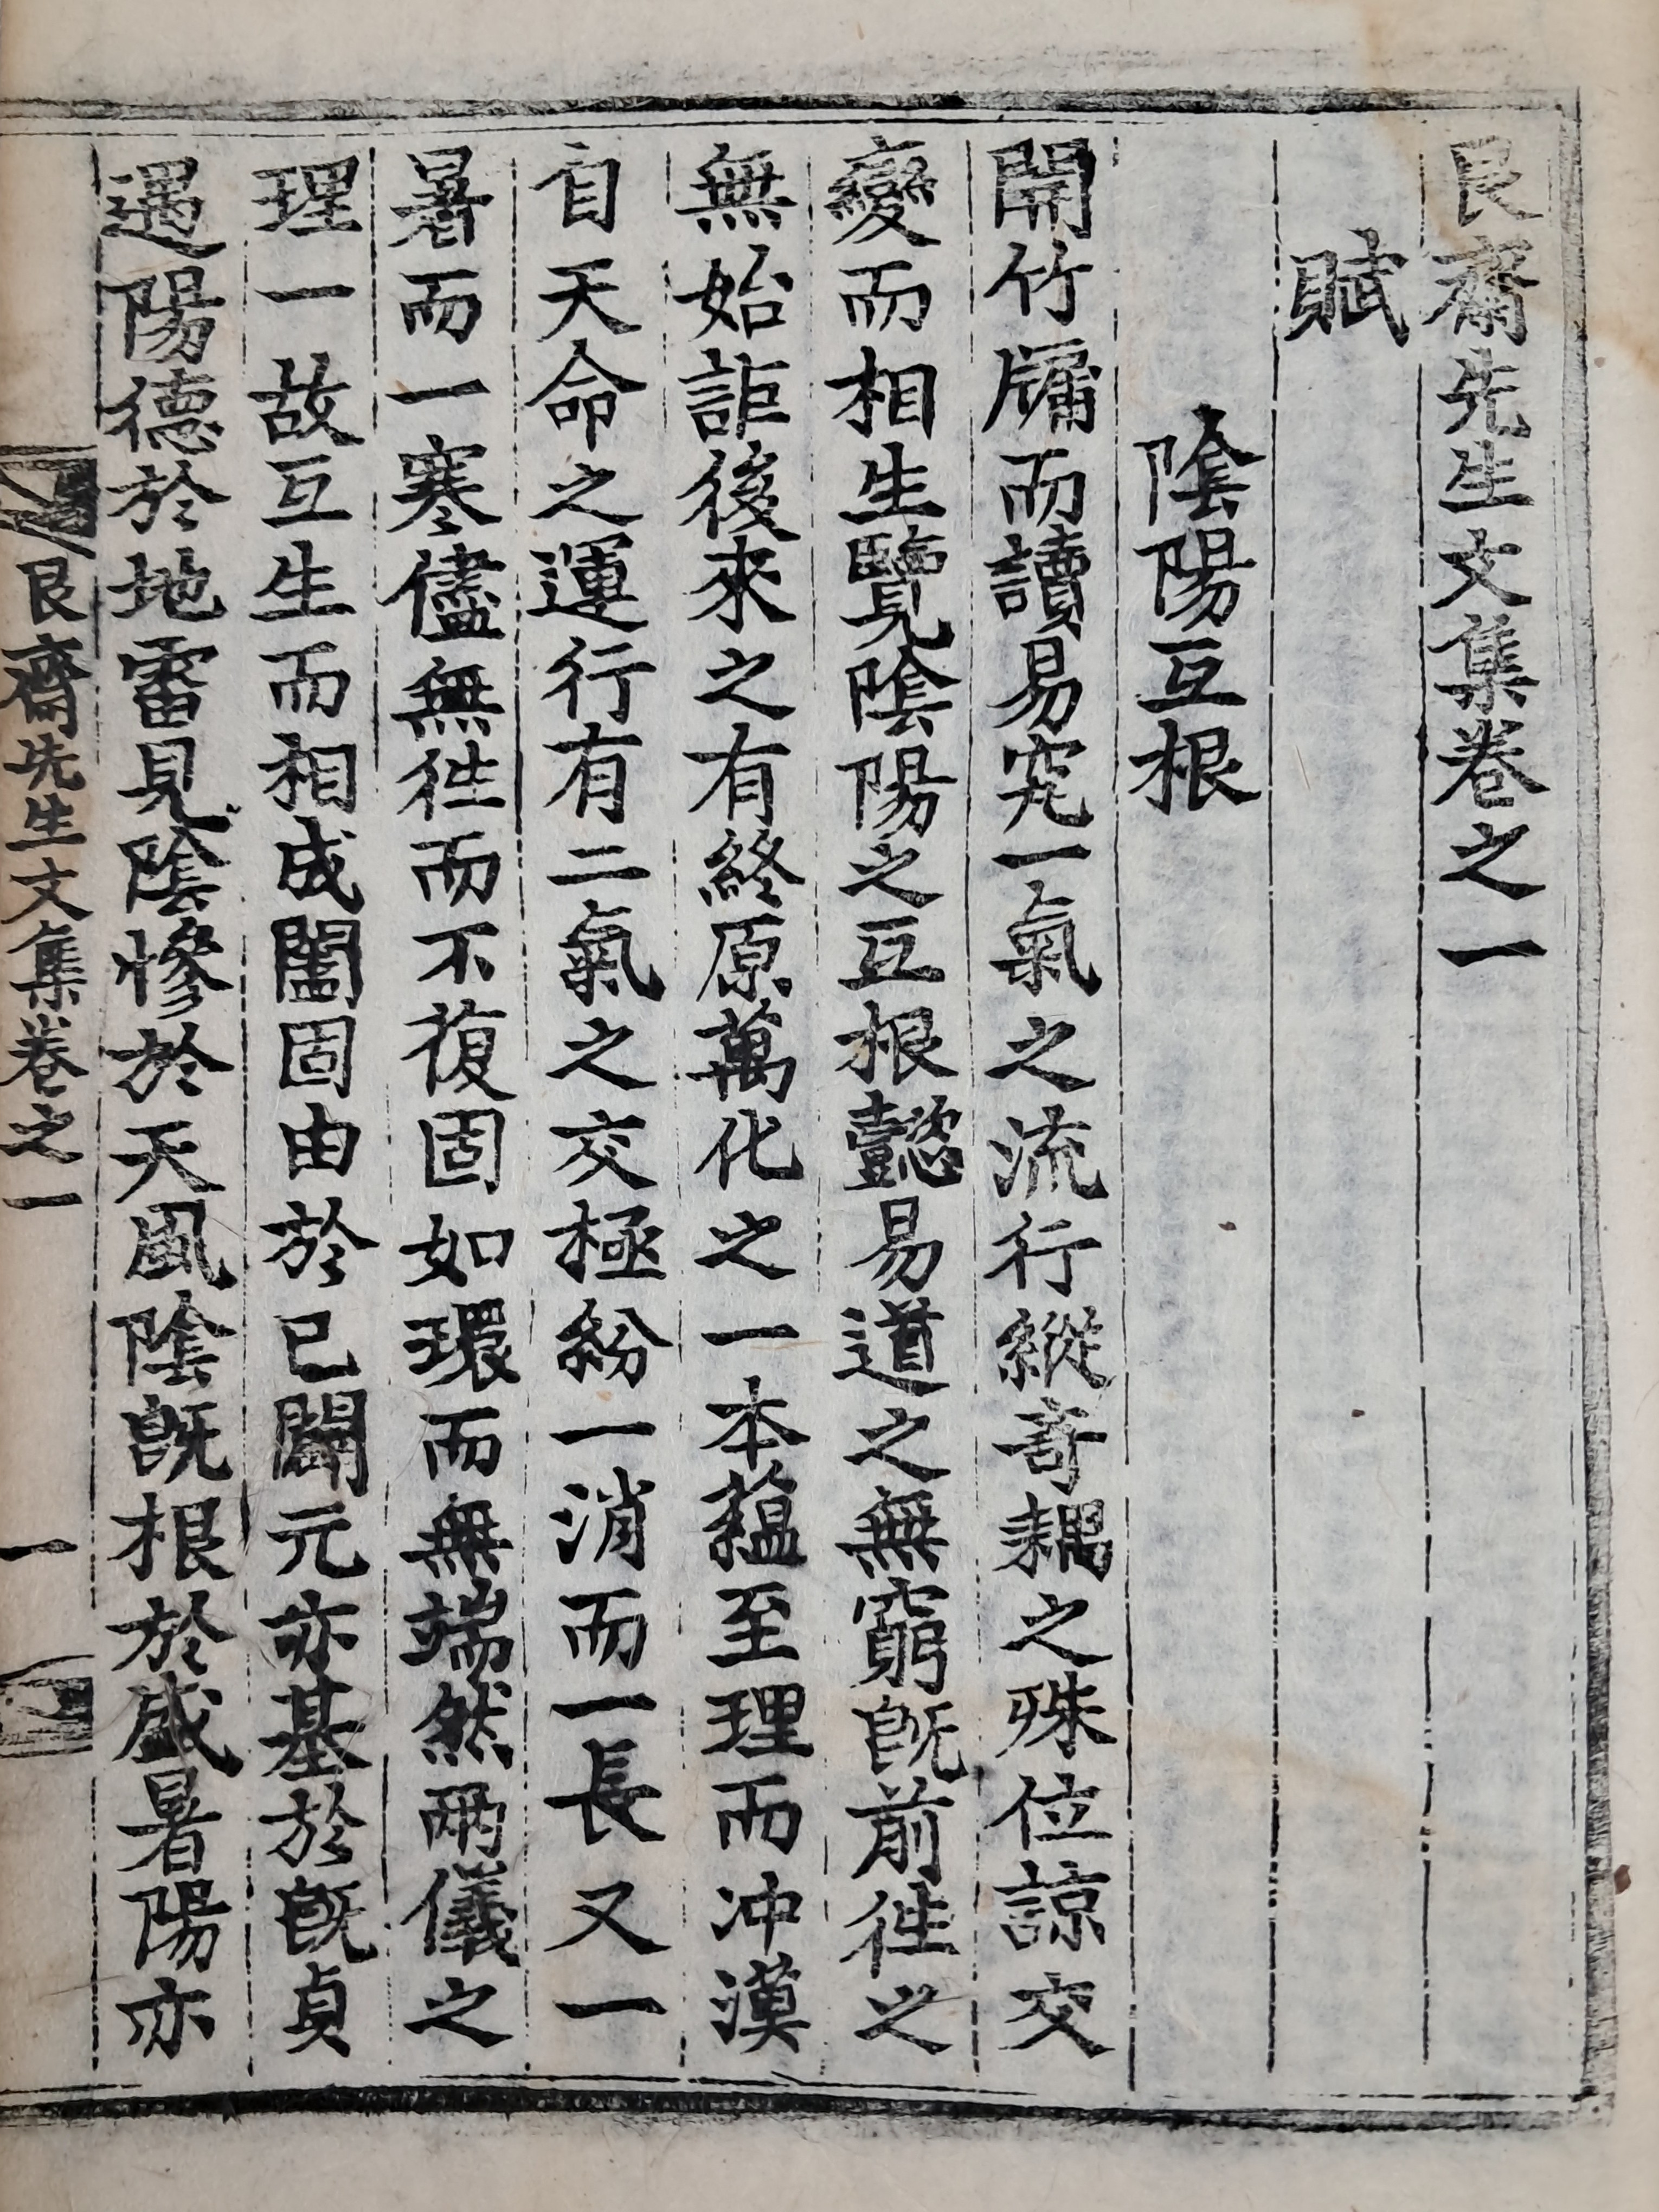 艮齋先生文集卷之一
賦
陰陽互根
開竹牖而讀易究一氣之流行縱奇耦之殊位諒交
變而相生覽陰陽之互根懿易道之無窮旣前往之
無始詎後來之有終原萬化之一本蘊至理而冲漠
自天命之運行有二氣之交極紛一消而一長又一
暑而一寒儘無往而不復固如環而無端然兩儀之
理一故互生而相成闔固由於已闢元亦基於旣貞
遇陽德於地雷見陰慘於天風陰旣根於盛暑陽亦
艮齋先生文集卷之一 一